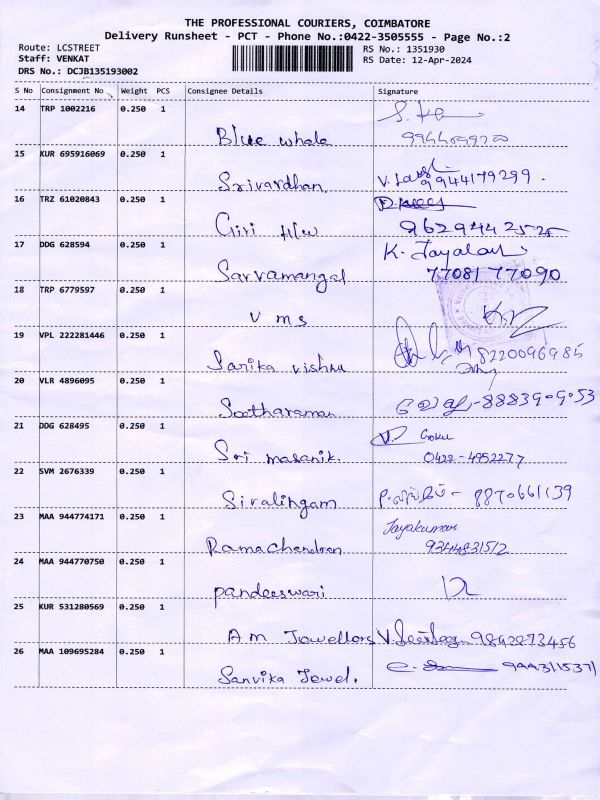 THE PROFESSIONAL COURIERS, COIMBATORE
Delivery Runsheet - PCT - Phone No.:0422-3505555 - Page No.:2
Route: LCSTREET RS No.: 1351930
Staff: VENKAT RS Date: 12-Apr-2024
DRS No.: DCJB135193002
S No Consignment No Weight PCS Consignee Details Signature
14 TRP 1002216 0.250 1
Blue whale
15 KUR 695916069 0.250 1
Srivardhan 9944179299.
16 TRZ 61020843 0.250 1
Giri
17 DDG 628594 0.250 1 K. Jayalax
Sarvamangal 7708177090
18 TRP 6779597 0.250 1
V M S
19 VPL 222281446 0.250 1
Sarika vishnu 8220096985
20 VLR 4896095 0.250 1
Seetharaman -8883909053
21 DDG 628495 0.250 1 Gokul
Sri masanik. 0422-4952277
22 SVM 2676339 0.250 1
Sivalingam 8870661139
23 MAA 944774171 0.250 1 Jayakumar
Ramachendren 9344831512
24 MAA 944770750 0.250 1
pandeeswari
25 KUR 531280569 0.250 1
A M Jewellers 9842273456
26 MAA 109695284 0.250 1
Sanvika Jewel.